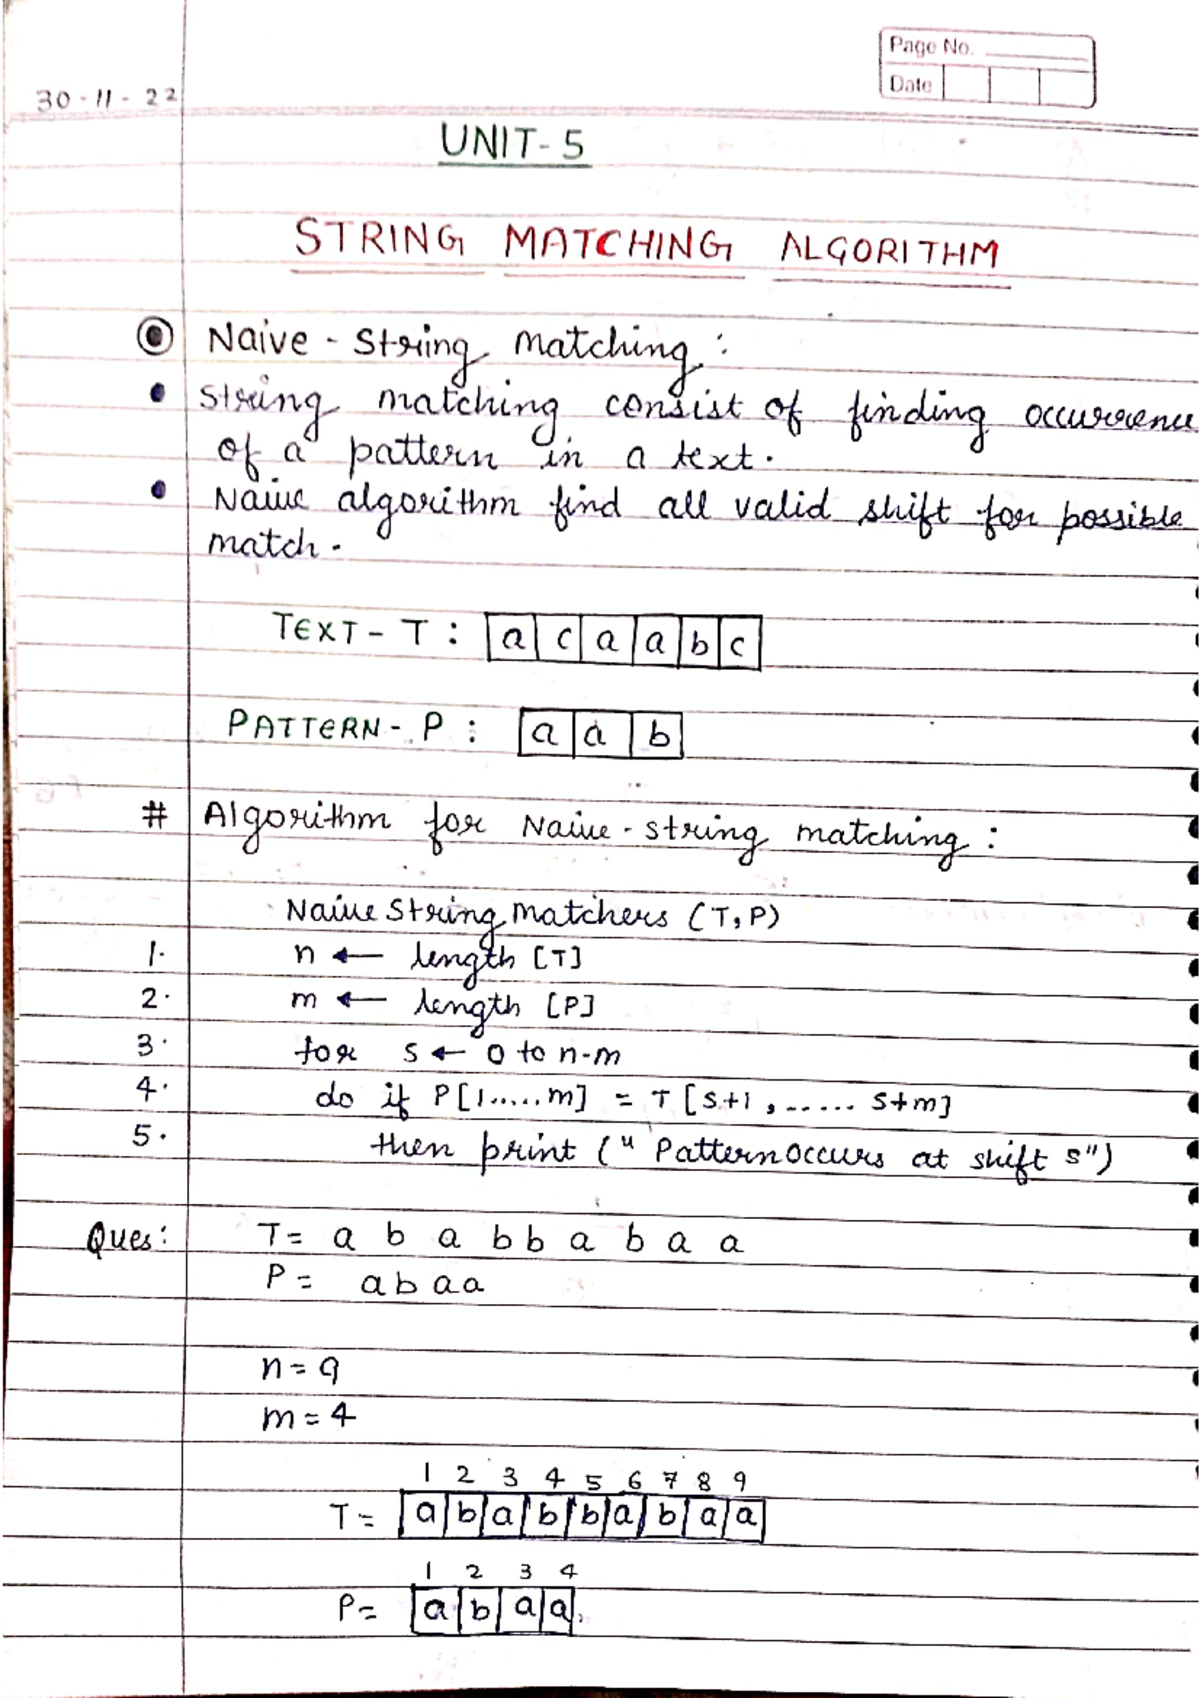 Page No.
Date
30-11-22
UNIT-5
STRING MATCHING ALGORITHM
Naive-String matching:
String matching consist of finding occurrence
of a pattern in a text.
Naive algorithm find all valid shift for possible
match.
TEXT-T: a c a a b c
PATTERN-P: a a b
# Algorithm for Naive-string matching:
Naive String matchers (T,P)
1. n ← length [T]
2. m ← length [P]
3. for s ← 0 to n-m
4. do if P[1.....m] = T[s+1,......s+m]
5. then print ("Pattern occurs at shift s")
Ques: T= a b a b b a b a a
P= a b a a
n=9
m=4
1 2 3 4 5 6 7 8 9
T= a b a b b a b a a
1 2 3 4
P= a b a a